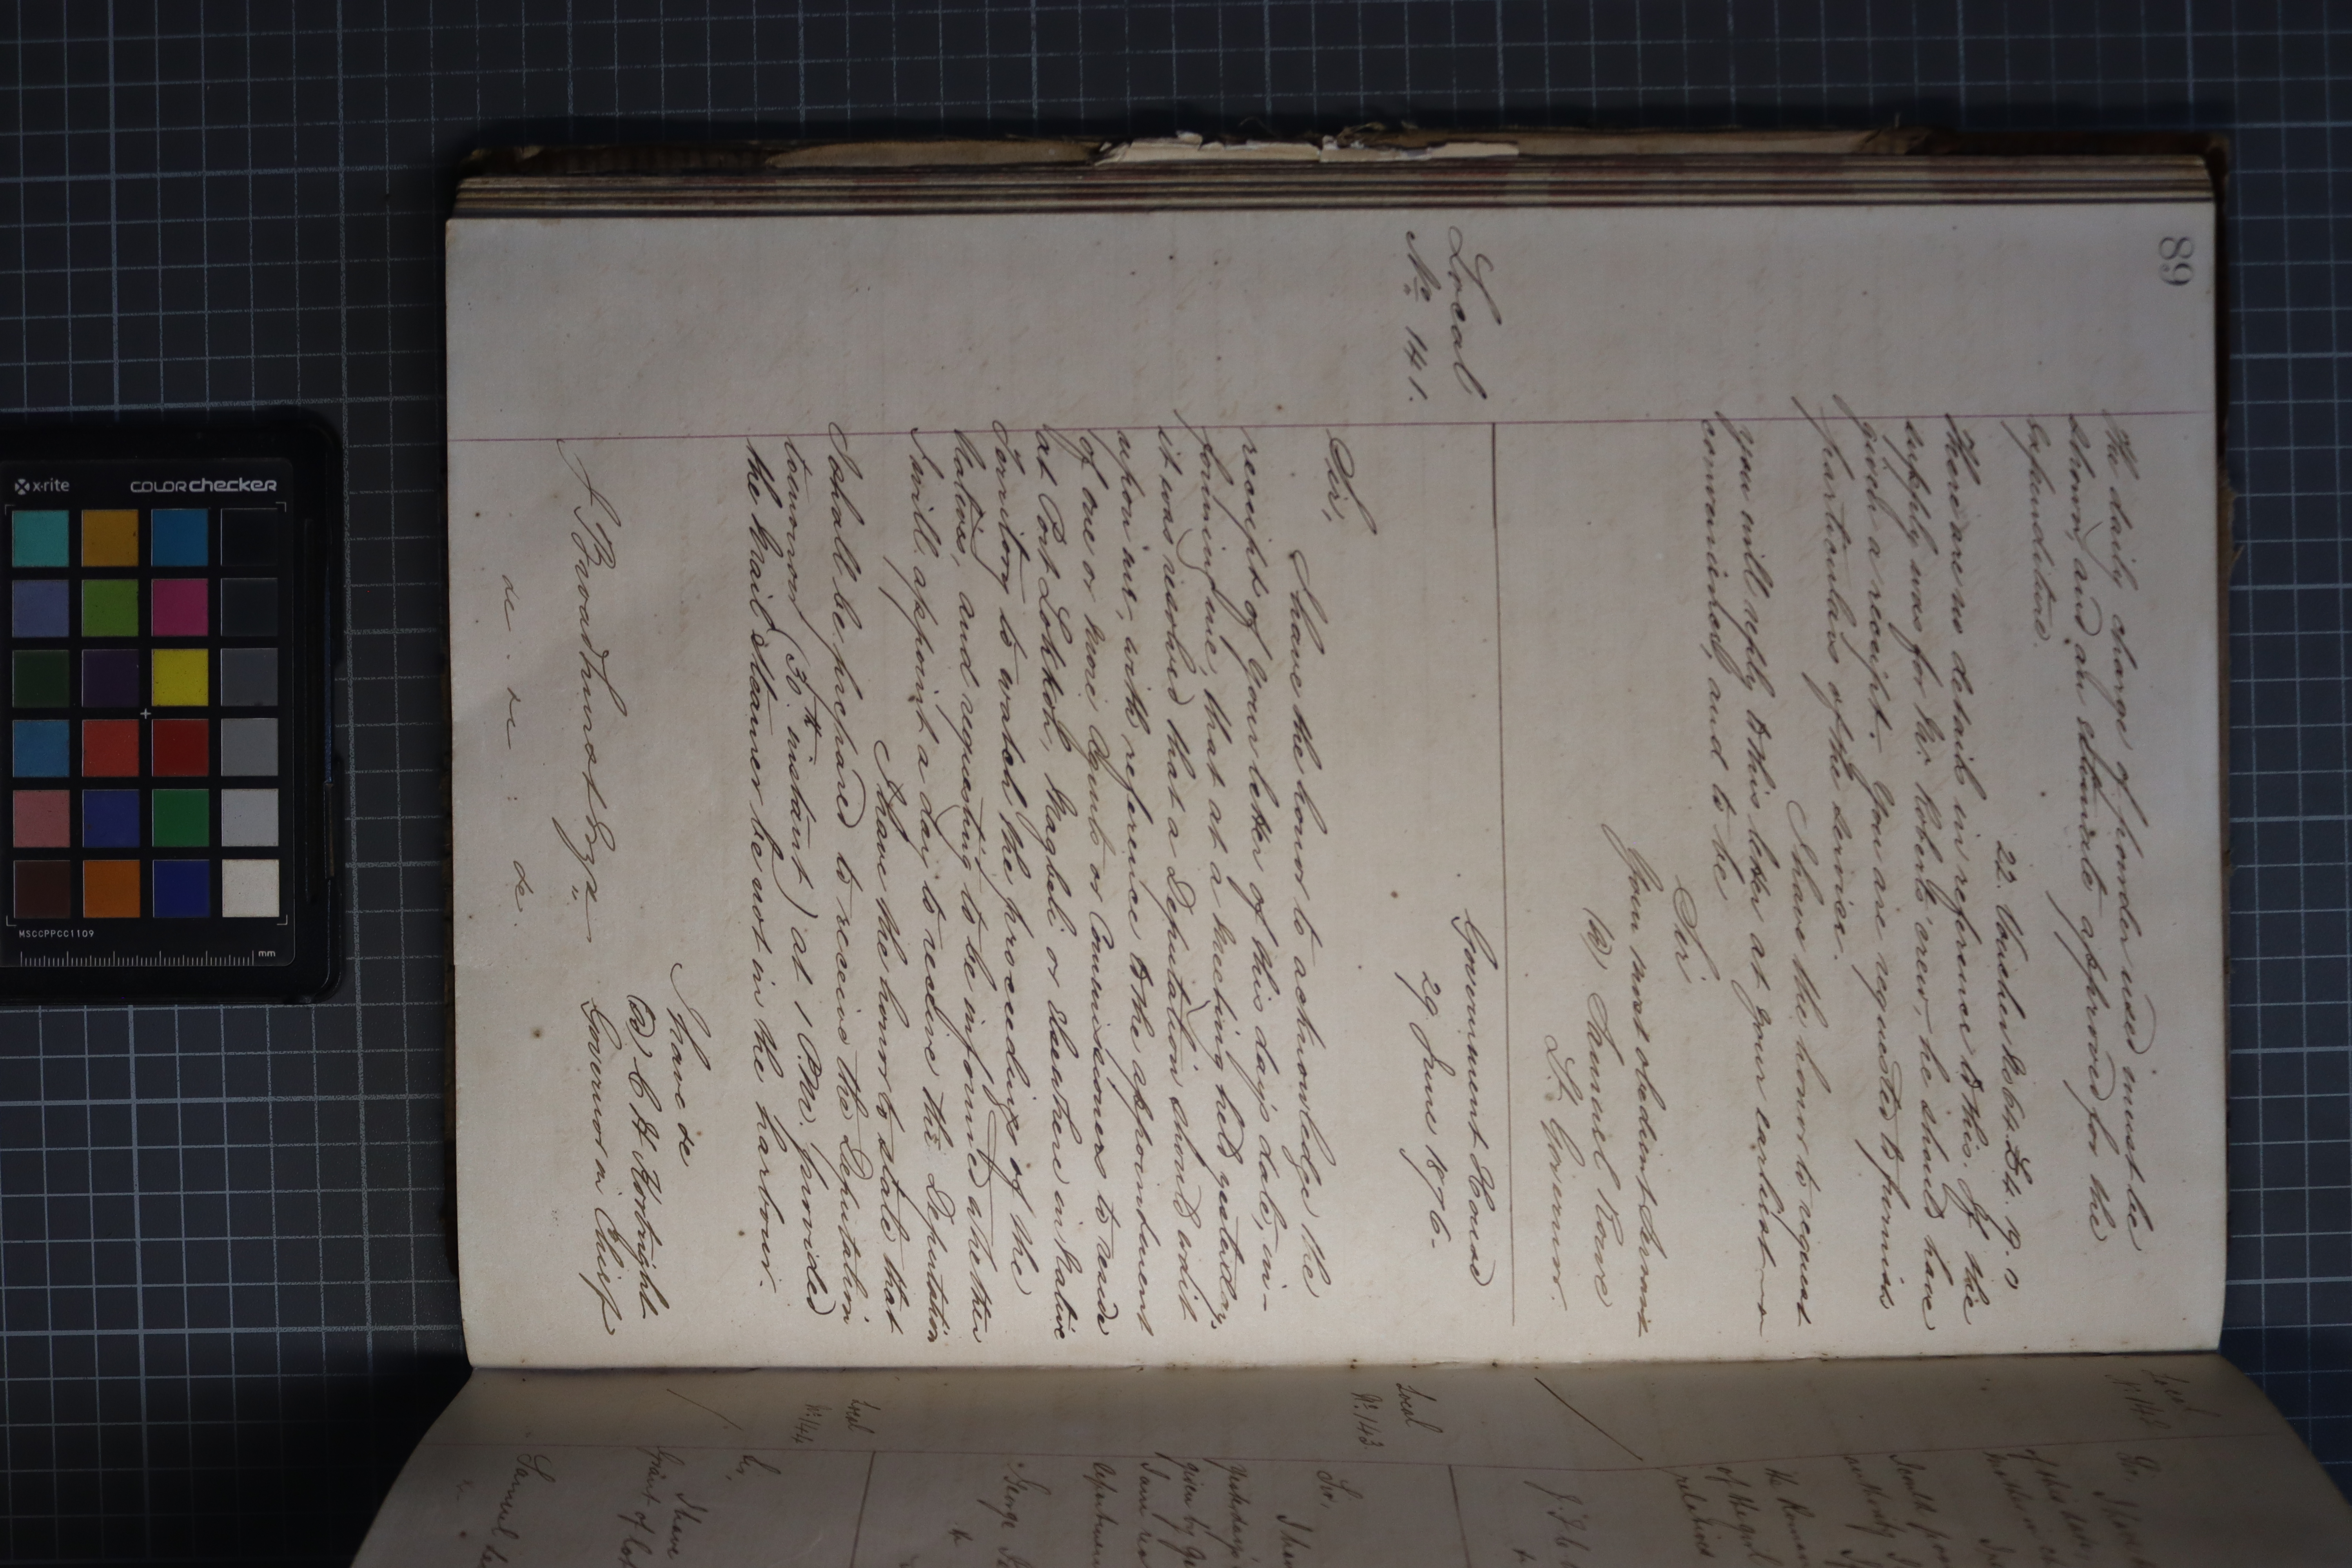 89
The daily charge of powder used must be
shown, and an estimate approved for the
expenditure.
22. Voucher No 64. £4. 9. 0
There are no details in reference to this. If the
supply was for Mr Roberts' crew, he should have
given a receipt. You are requested to furnish
particulars of the service.
I have the honor to request
you will reply to this letter at your earliest
convenience, and to be
Sir
Your most obedient Servant
Samuel Rowe
Lt. Governor.
Local
No 141.
Government House
29 June 1876.
Sir,
I have the honor to acknowledge the
receipt of your letter of this day's date, in-
forming me, that at a Meeting held yesterday,
it was resolved that a Deputation should wait
upon me, with reference to the appointment
of one or more Agents or Commissioners to reside
at Port Lokkoh, Magbeli or elsewhere in Native
Territory to watch the proceedings of the
Natives, and requesting to be informed whether
I will appoint a day to receive the Deputation
I have the honor to state, that
I shall be prepared to receive the Deputation
tomorrow (30th instant) at 1 P.M. provided
the Mail Steamer be not in the harbour.
I have &c
C H Kortright
J Broadhurst Esqr. Governor in Chief
&c. &c. &c.
Local
Sir, I have
J. J. 
Local
No 143.
Sir,
I have
yesterday's
given by
I am
department
George
Local
No 144
Sir,
I have
Samuel